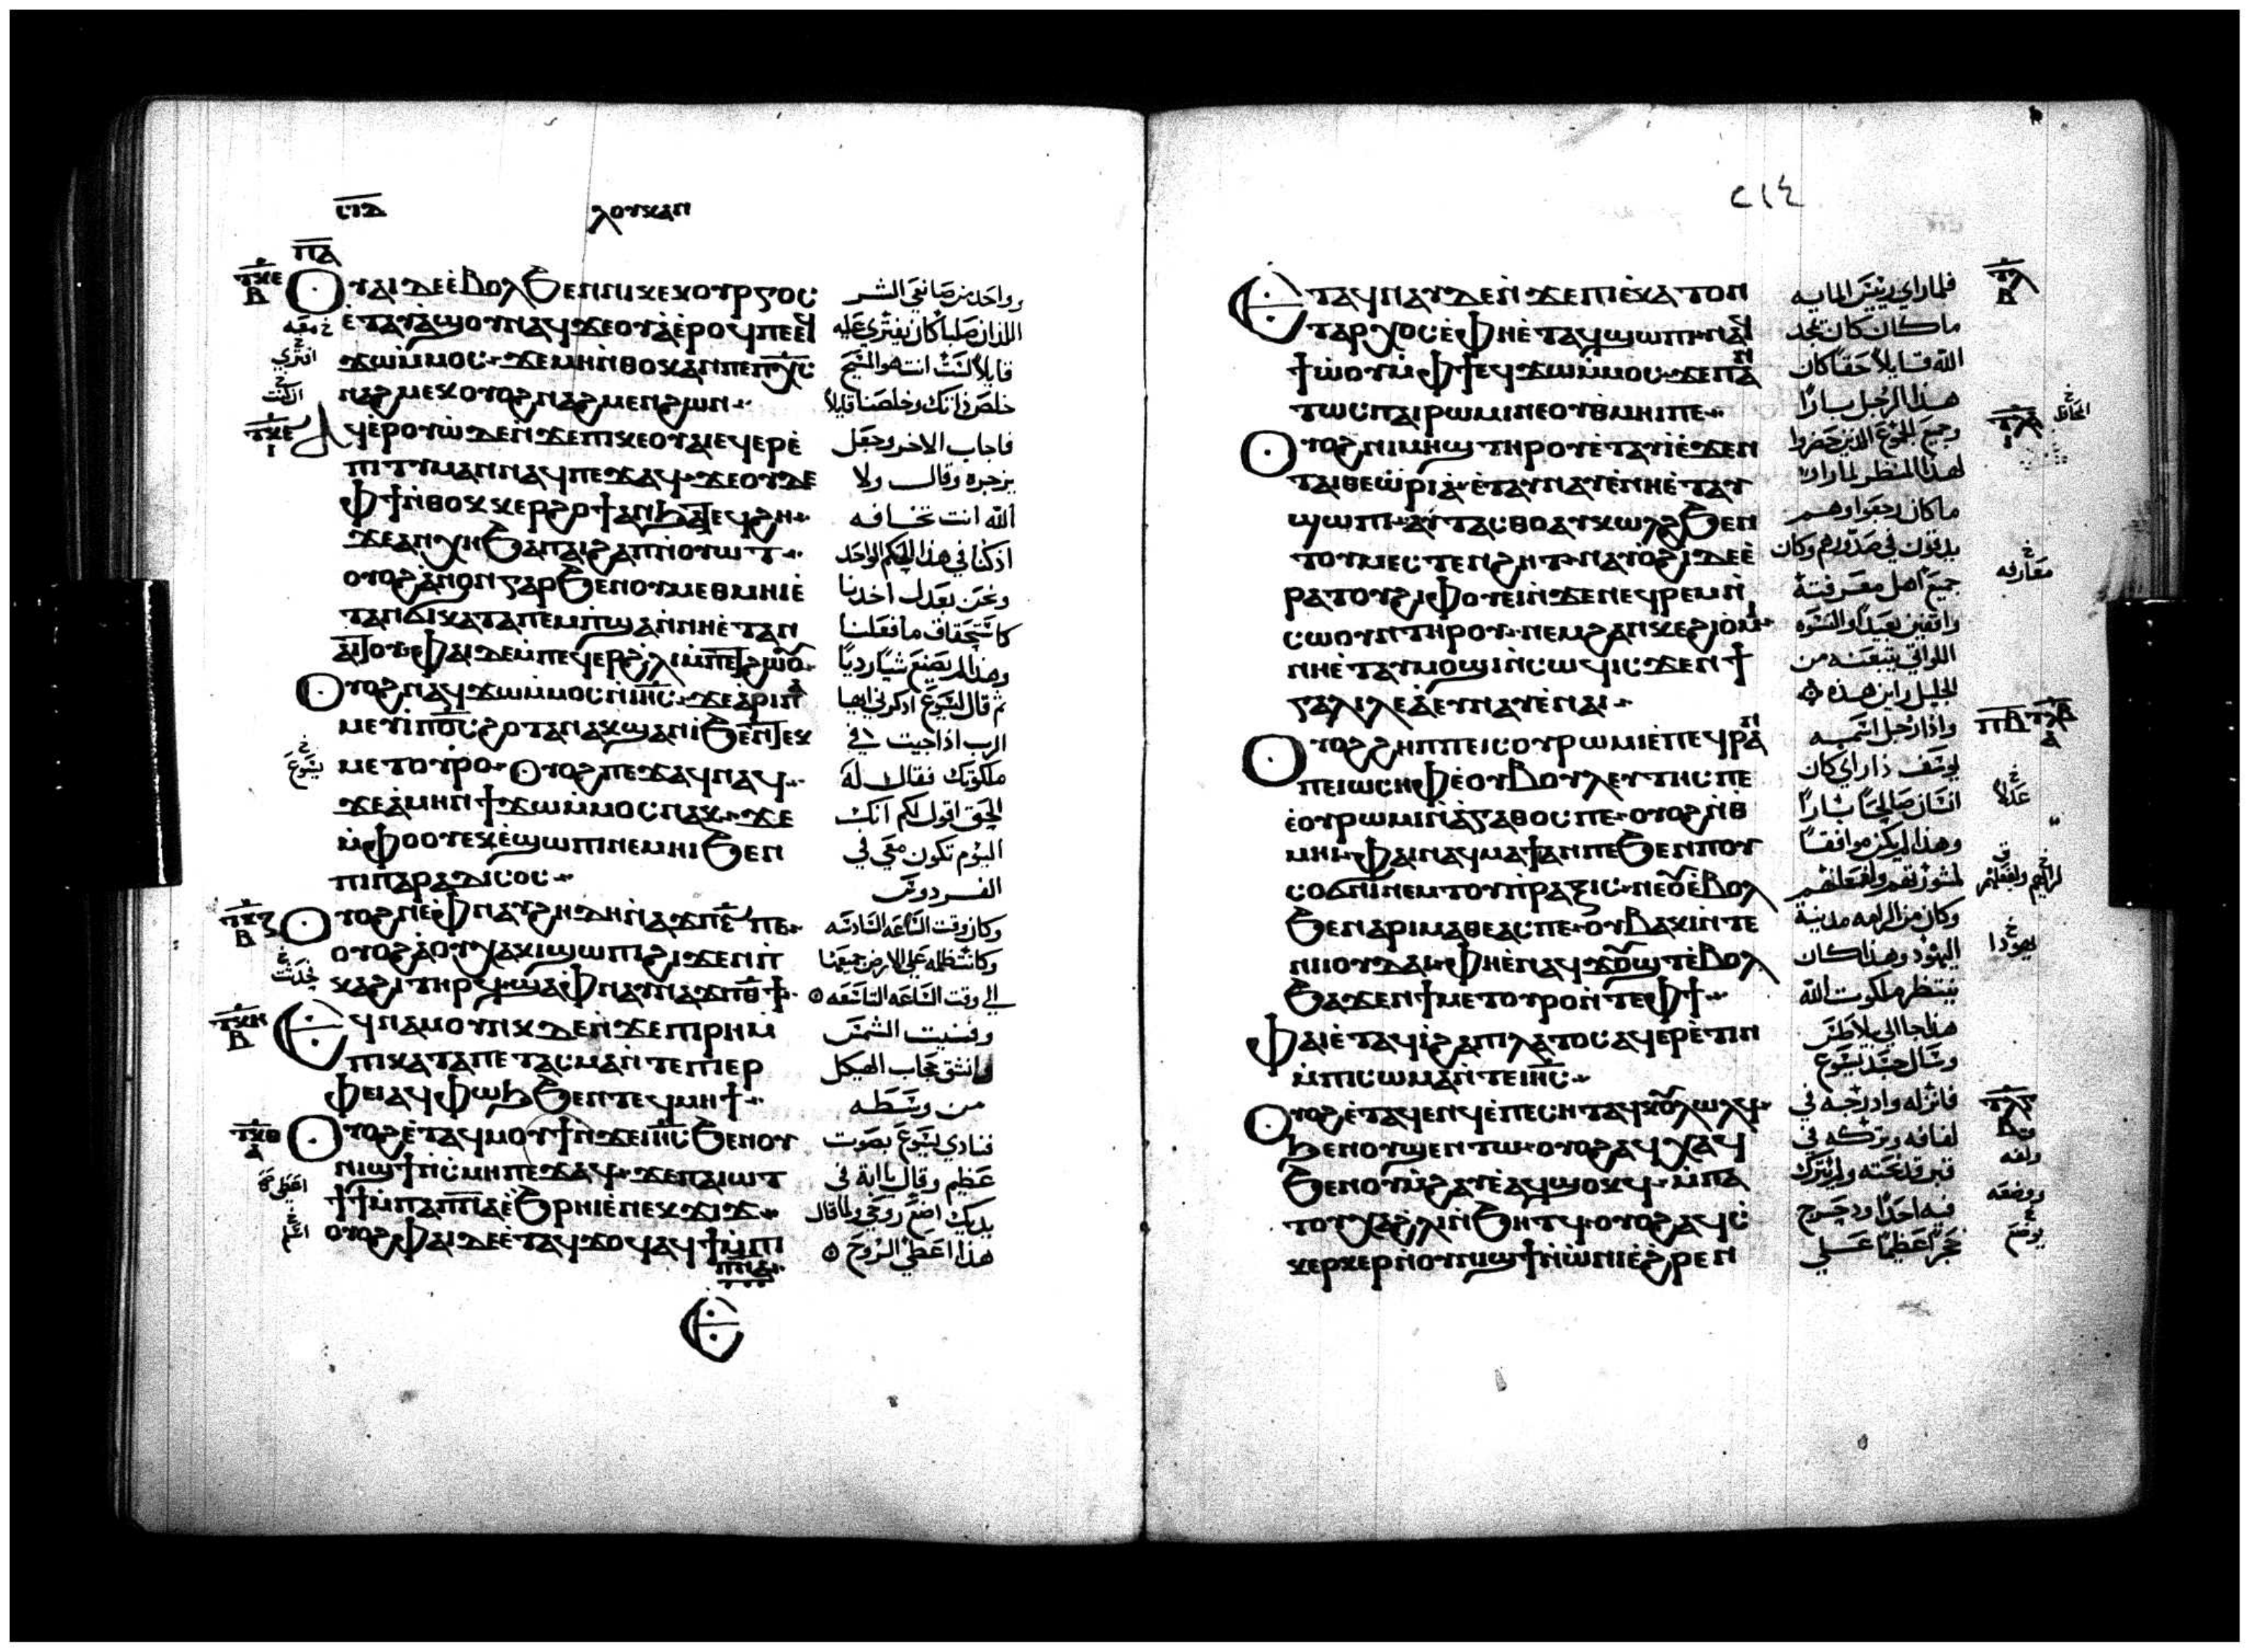 ⲥⲓⲇ ⲗⲟⲩⲕⲁⲛ
ⲡⲁ
ⲧⲕⲉ ⲃ
ⲟⲩⲁⲓ ⲇⲉ ⲉⲃⲟⲗ ϧⲉⲛ ⲛⲓⲕⲉⲕⲟⲩⲣⲅⲟⲥ
ⲉⲧⲁⲩⲁϣⲟⲩ ⲛⲁϥϫⲉⲟⲩⲁ ⲉⲣⲟϥ ⲡⲉ ⲉϥ
ϫⲱ ⲙⲙⲟⲥ ϫⲉ ⲙⲏ ⲛⲑⲟⲕ ⲁⲛ ⲡⲉ ⲡⲭⲥ
ⲛⲁϩⲙⲉⲕ ⲟⲩⲟϩ ⲛⲁϩⲙⲉⲛ ϩⲱⲛ
ⲁϥⲉⲣⲟⲩⲱ ⲇⲉ ⲛϫⲉ ⲡⲓⲕⲉⲟⲩⲁⲓ ⲉϥⲉⲣⲉ
ⲡⲓⲧⲓⲙⲁⲛ ⲛⲁϥ ⲡⲉϫⲁϥ ϫⲉ ⲟⲩⲇⲉ
ⲫϯ ⲛⲑⲟⲕ ⲕⲉⲣϩⲟϯ ⲁⲛ ϧⲁⲧⲉϥϩⲏ
ϫⲉ ⲁⲛⲭⲏ ϧⲁ ⲡⲁⲓϩⲁⲡ ⲛⲟⲩⲱⲧ
ⲟⲩⲟϩ ⲁⲛⲟⲛ ⲅⲁⲣ ϧⲉⲛ ⲟⲩⲙⲉⲑⲙⲏⲓ ⲉ
ⲧⲁⲛϭⲓ ⲕⲁⲧⲁ ⲡⲉⲙⲡϣⲁ ⲛⲛⲏ ⲉⲧⲁⲛ
ⲁⲓⲧⲟⲩ ⲫⲁⲓ ⲇⲉ ⲙⲡⲉϥⲉⲣ ϩⲗⲓ ⲙⲡⲉⲧϩⲱⲟⲩ
ⲟⲩⲟϩ ⲛⲁϥϫⲱ ⲙⲙⲟⲥ ⲛⲓⲏⲥ ϫⲉ ⲁⲣⲓⲡⲁ
ⲙⲉⲩⲓ ⲡϭⲥ ϩⲟⲧⲁⲛ ⲁⲕϣⲁⲛⲓ ϧⲉⲛ ⲧⲉⲕ
ⲙⲉⲧⲟⲩⲣⲟ ⲟⲩⲟϩ ⲡⲉϫⲁϥ ⲛⲁϥ
ϫⲉ ⲁⲙⲏⲛ ϯϫⲱ ⲙⲙⲟⲥ ⲛⲁⲕ ϫⲉ
ⲙⲫⲟⲟⲩ ⲉⲕⲉϣⲱⲡⲓ ⲛⲉⲙⲏⲓ ϧⲉⲛ
ⲡⲓⲡⲁⲣⲁⲇⲓⲥⲟⲥ
ⲟⲩⲟϩ ⲛⲉ ⲫⲛⲁⲩ ϩⲏⲇⲏ ⲛⲁϫⲡ ⲋ ⲡⲉ
ⲟⲩⲟϩ ⲁ ⲟⲩⲭⲁⲕⲓ ϣⲱⲡⲓ ϩⲓϫⲉⲛ ⲡ
ⲕⲁϩⲓ ⲧⲏⲣϥ ϣⲁ ⲫⲛⲁⲩ ⲛⲁϫⲡ ⲑϯ
ⲉϥⲛⲁⲙⲟⲩⲛⲕ ⲇⲉ ⲛϫⲉ ⲡⲓⲣⲏ ⲙ
ⲡⲓⲕⲁⲧⲁⲡⲉⲧⲁⲥⲙⲁ ⲛⲧⲉ ⲡⲓⲉⲣ
ⲫⲉⲓ ⲁϥⲫⲱϧ ϧⲉⲛ ⲧⲉϥⲙⲏϯ
ⲟⲩⲟϩ ⲉⲧⲁϥⲙⲟⲩϯ ⲛϫⲉ ⲓⲏⲥ ϧⲉⲛ ⲟⲩ
ⲛⲓϣϯ ⲛⲥⲙⲏ ⲡⲉϫⲁϥ ϫⲉ ⲡⲁⲓⲱⲧ
ϯϯ ⲙⲡⲁⲡⲛⲁ ⲉϧⲣⲏⲓ ⲉⲛⲉⲕϫⲓϫ
ⲟⲩⲟϩ ⲫⲁⲓ ⲇⲉ ⲉⲧⲁϥϫⲟϥ ⲁϥϯ ⲙⲡⲓ
ⲡⲛⲁ
ⲉ
وواحد من صانعي الشر
اللذان صلبا كان يفتري عليه
قايلاً الست انت هو المسيح
خلص ذاتك وخلصنا قايلاً
فاجاب الاخر وجعل
يزجره وقال ولا
الله انت تخافه
اذ كنا في هذا الحكم الواحد
ونحن بعدل اخذنا
كاستحقاق ما فعلنا
وهذا لم يصنع شيا رديا
ثم قال ليسوع اذكرني ايها
الرب اذا جيت في
ملكوتك فقال له
الحق اقول لكم انك
اليوم تكون معي في
الفردوس
وكان وقت الساعه السادسه
وكانت ظلمه على الارض جميعها
الي وقت الساعه التاسعه
وفنيت الشمس
وانشق حجاب الهيكل
من وسطه
فنادي يسوع بصوت
عظيم وقال يا ابة في
يديك اضع روحي ولما قال
هذا اعطي الروح
٢١٤
ⲉⲧⲁϥⲛⲁⲩ ⲇⲉ ⲛϫⲉ ⲡⲓⲉⲕⲁⲧⲟⲛ
ⲧⲁⲣⲭⲟⲥ ⲉⲫⲏ ⲉⲧⲁϥϣⲱⲡⲓ ⲛⲁϥ
ϯⲱⲟⲩ ⲙⲫϯ ⲉϥϫⲱ ⲙⲙⲟⲥ ϫⲉ ⲡⲁⲛ
ⲧⲱⲥ ⲡⲁⲓⲣⲱⲙⲓ ⲛⲉ ⲟⲩⲑⲙⲏⲓ ⲡⲉ
ⲟⲩⲟϩ ⲛⲓⲙⲏϣ ⲧⲏⲣⲟⲩ ⲉⲧⲁⲩⲓ ⲉϫⲉⲛ
ⲧⲁⲓⲑⲉⲱⲣⲓⲁ ⲉⲧⲁⲩⲛⲁⲩ ⲉⲛⲏ ⲉⲧⲁⲩ
ϣⲱⲡⲓ ⲁⲩⲧⲁⲥⲑⲟ ⲁⲩⲕⲱⲗϩ ϧⲉⲛ
ⲧⲟⲩⲙⲉⲥⲧⲉⲛϩⲏⲧ ⲛⲁⲩⲟϩⲓ ⲇⲉ ⲉ
ⲣⲁⲧⲟⲩ ϩⲓ ⲫⲟⲩⲉⲓ ⲛϫⲉ ⲛⲉϥⲣⲉⲙⲛ
ⲥⲱⲟⲩⲛ ⲧⲏⲣⲟⲩ ⲛⲉⲙ ϩⲁⲛⲕⲉϩⲓⲟⲙⲓ
ⲛⲏ ⲉⲧⲁⲩⲙⲟϣⲓ ⲛⲥⲱϥ ⲓⲥϫⲉⲛ ϯ
ⲅⲁⲗⲓⲗⲉⲁ ⲉⲩⲛⲁⲩ ⲉⲛⲁⲓ
ⲟⲩⲟϩ ϩⲏⲡⲡⲉ ⲓⲥ ⲟⲩⲣⲱⲙⲓ ⲉⲡⲉϥⲣⲁⲛ
ⲡⲉ ⲓⲱⲥⲏⲫ ⲉⲟⲩⲃⲟⲩⲗⲉⲩⲧⲏⲥ ⲡⲉ
ⲉⲟⲩⲣⲱⲙⲓ ⲛⲁⲅⲁⲑⲟⲥ ⲡⲉ ⲟⲩⲟϩ ⲛⲑ
ⲙⲏⲓ ⲫⲁⲓ ⲛⲁϥⲙⲁϯ ⲁⲛ ⲡⲉ ϧⲉⲛ ⲡⲟⲩ
ⲥⲟϭⲛⲓ ⲛⲉⲙ ⲧⲟⲩⲡⲣⲁⲝⲓⲥ ⲛⲉⲟⲩⲉⲃⲟⲗ
ϧⲉⲛ ⲁⲣⲓⲙⲁⲑⲉⲁⲥ ⲡⲉ ⲟⲩⲃⲁⲕⲓ ⲛⲧⲉ
ⲛⲓⲓⲟⲩⲇⲁⲓ ⲫⲏ ⲉⲛⲁϥϫⲟⲩϣⲧ ⲉⲃⲟⲗ
ϧⲁϫⲉⲛ ϯⲙⲉⲧⲟⲩⲣⲟ ⲛⲧⲉ ⲫϯ
ⲫⲁⲓ ⲉⲧⲁϥⲓ ϩⲁ ⲡⲓⲗⲁⲧⲟⲥ ⲁϥⲉⲣⲉⲧⲓⲛ
ⲙⲡⲓⲥⲱⲙⲁ ⲛⲧⲉ ⲓⲏⲥ
ⲟⲩⲟϩ ⲉⲧⲁϥⲉⲛϥ ⲉⲡⲉⲥⲏⲧ ⲁϥⲕⲟⲩⲗⲱⲗϥ
ϧⲉⲛ ⲟⲩϣⲉⲛⲧⲱ ⲟⲩⲟϩ ⲁϥⲭⲁϥ
ϧⲉⲛ ⲟⲩⲙϩⲁⲩ ⲉⲁϥϣⲟⲕϥ ⲙⲡⲁ
ⲧⲟⲩⲭⲁ ϩⲗⲓ ⲛϧⲏⲧϥ ⲟⲩⲟϩ ⲁϥⲥ
ⲕⲉⲣⲕⲉⲣ ⲛⲟⲩⲛⲓϣϯ ⲛⲱⲛⲓ ⲉϩⲣⲉⲛ
فلما راي رييس المايه
ما كان كان يمجد
الله قايلاً حقاً كان
هذا الرجل بارا
وجميع الجموع الذين حضروا
لهذا المنظر لما راوا
ما كان رجعوا وهم
يدقون في صدورهم وكان
جميع اهل معرفته
واقفين بعيداً والنسوه
اللواتي يتبعنه من
الجليل راين هذه
واذا رجل اسمه
يوسف ذا راي كان
انسان صالحاً باراً
وهذا لم يكن موافقاً
لمشورتهم ولفعلهم
وكان من الرامه مدينة
اليهود وهذا كان
ينتظر ملكوت الله
هذا جا الي بيلاطس
وسال جسد يسوع
فانزله وادرجه في
لفافه وتركه في
قبر قد نحته ولم يترك
فيه احداً ودحرج
حجراً عظيماً علي